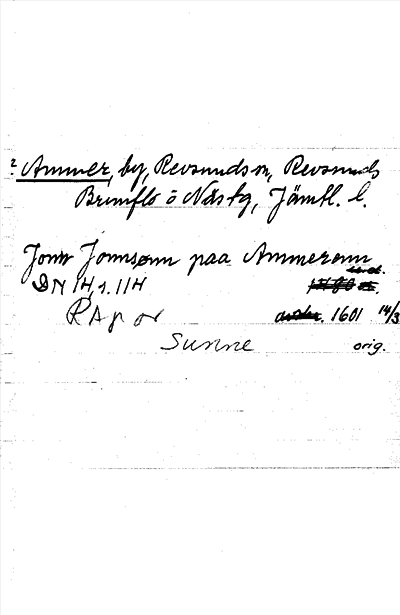 ? Ammer, by, Revsunds sn, Revsunds
Brunflo o Näs tg, Jämtl. l.
Jonn Jonnsønn paa Ammerenn
DN 14, s. 114
RAp or 1601 14/3
Sunne orig.